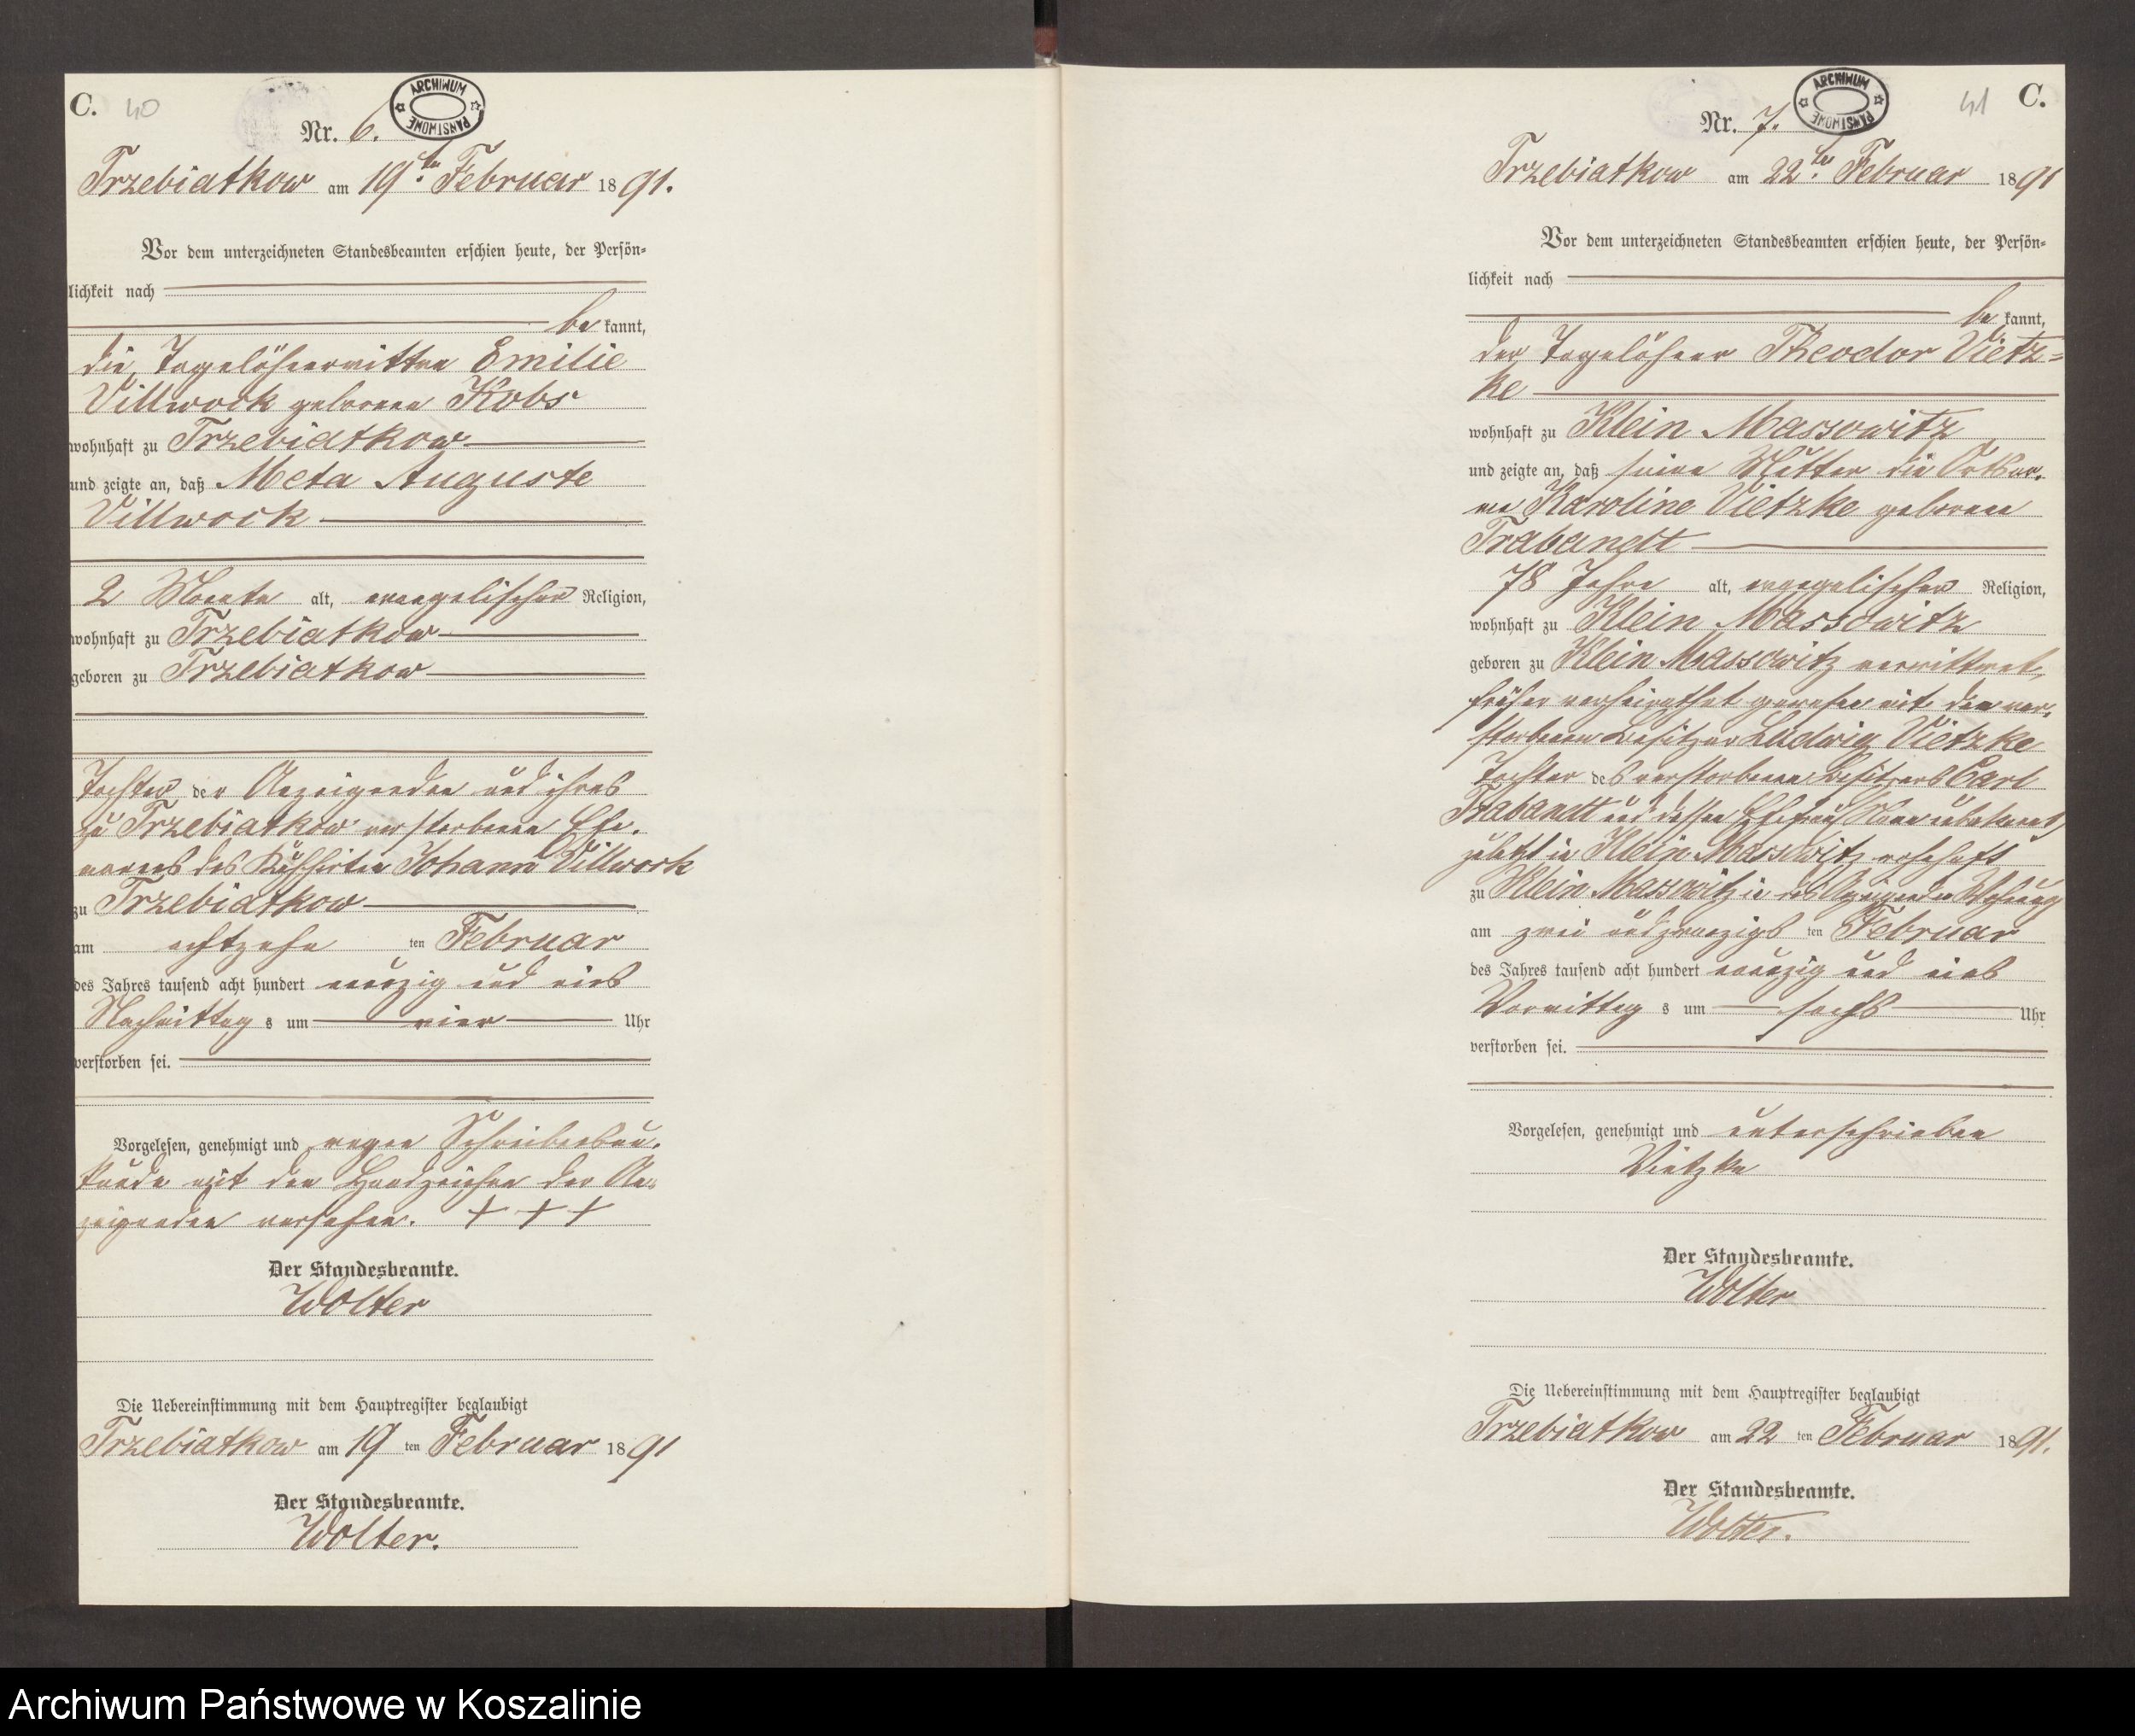 C. 40
ARCHIWUM PAŃSTWOWE
Nr. 6.
Trzebiatkow am 19ten Februar 1891.
Vor dem unterzeichneten Standesbeamten erschien heute, der Persön-
lichkeit nach
be kannt,
die Tagelöhnerwittwe Emilie
Villwock geborene Kobs
wohnhaft zu Trzebiatkow
und zeigte an, daß Meta Auguste
Villwock
2 Monate alt, evangelischer Religion,
wohnhaft zu Trzebiatkow
geboren zu Trzebiatkow
Tochter der Anzeigenden und ihres
zu Trzebiatkow verstorbenen Ehe-
mannes des Kuhhirten Johann Villwock
zu Trzebiatkow
am achtzehn ten Februar
des Jahres tausend acht hundert neunzig und eins
Nachmittag s um vier Uhr
verstorben sei.
Vorgelesen, genehmigt und wegen Schreibensun-
kunde mit den Handzeichen der An-
zeigenden versehen. + + +
Der Standesbeamte.
Wolter
Die Uebereinstimmung mit dem Hauptregister beglaubigt
Trzebiatkow am 19 ten Februar 1891
Der Standesbeamte.
Wolter.
41 C.
ARCHIWUM PAŃSTWOWE
Nr. 7.
Trzebiatkow am 22ten Februar 1891
Vor dem unterzeichneten Standesbeamten erschien heute, der Persön-
lichkeit nach
be kannt,
der Tagelöhner Theodor Vietz-
ke
wohnhaft zu Klein Massowitz
und zeigte an, daß seine Mutter die Ortsar-
me Karoline Vietzke geborene
Trabandt
78 Jahre alt, evangelischer Religion,
wohnhaft zu Klein Massowitz
geboren zu Klein Massowitz verwittwet,
früher verheirathet gewesen mit dem ver-
storbenen Besitzer Ludwig Vietzke
Tochter des verstorbenen Besitzers Carl
Trabandt und dessen Ehefrau Name unbekannt,
zuletzt in Klein Massowitz wohnhaft
zu Klein Massowitz in des Anzeigenden Wohnung
am zwei und zwanzigs ten Februar
des Jahres tausend acht hundert neunzig und eins
Vormittag s um sechs Uhr
verstorben sei.
Vorgelesen, genehmigt und unterschrieben
Vietzke
Der Standesbeamte.
Wolter
Die Uebereinstimmung mit dem Hauptregister beglaubigt
Trzebiatkow am 22 ten Februar 1891.
Der Standesbeamte.
Wolter.
Archiwum Państwowe w Koszalinie